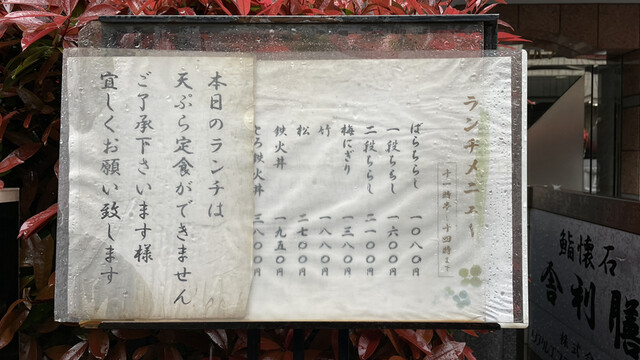 ランチメニュー
十一時半〜十四時まで
ばらちらし 一〇八〇円
一段ちらし 一六〇〇円
二段ちらし 二一〇〇円
梅にぎり 一三八〇円
竹 一八八〇円
松 二七〇〇円
鉄火丼 一九五〇円
とろ鉄火丼 三八〇〇円
本日のランチは
天ぷら定食ができません
ご了承下さいます様
宜しくお願い致します
鮨懐石
舎利膳